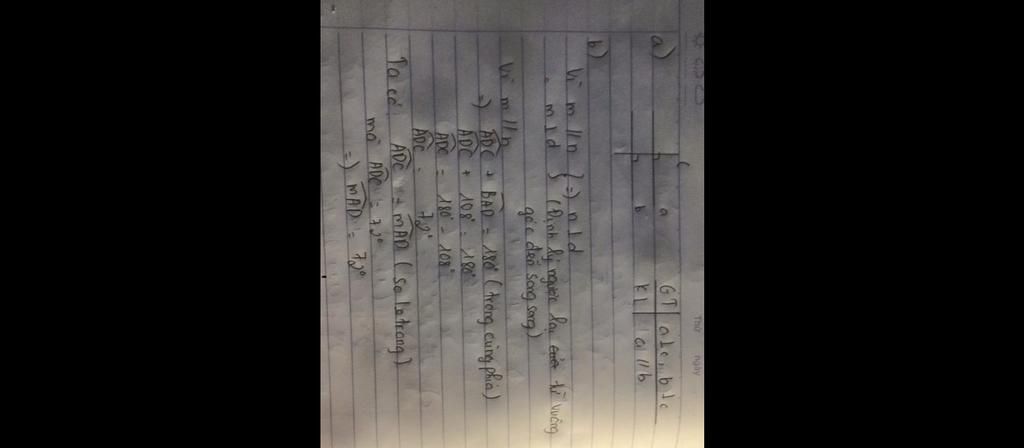 Thứ ngày
a)
c
a
b
GT | a⊥c, b⊥c
KL | a // b
b)
Vì m // n } => n⊥d
m⊥d } (Định lý ngược lại từ vuông
góc đến song song)
Vì m // n
=> ADC + BAD = 180° (trong cùng phía)
ADC + 108° = 180°
ADC = 180° - 108°
ADC = 72°
Ta có ADC = mAD (so le trong)
mà ADC = 72°
=> mAD = 72°